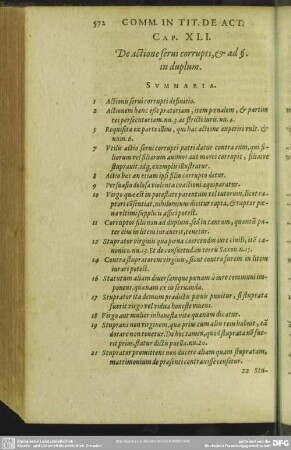 572 COMM. IN TIT. DE ACT.
CAP. XLI.
De actione serui corrupti, & ad §.
in duplum.
SVMMARIA.
1 Actionis serui corrupti definitio.
2 Actionem hanc esse pratoriam, item penalem, & partim
rei persecutoriam. nu. 3. ac stricti iuris. nu. 4.
5 Requisita ex parte illius, qui hac actione experiri vult. &
num. 6.
7 Vtilis actio serui corrupti patri datur contra eum, qui fi-
liorum vel filiarum animos aut mores corrupit, filiasve
stuprauit. idq; exemplis illustratur.
8 Actio hec an etiam ipsi filio corrupto datur.
9 Persuasio dolosa violenta coactioni aquiparatur.
10 Virgo que est in potestate parentum vel tutorum, licet ra-
ptori consentiat, nihilominus dicitur rapta, & raptor pœ-
na vltimi supplicii affici potest.
11 Corruptor filii non ad duplum, sed in tantum, quantum pa-
ter eius in litem iurauerit, tenetur.
12 Stuprator virginis qua pœna coercendus iure ciuili, item ca-
nonico. nu. 13. Et de consuetudine terre Saxon. nu. 15.
14 Contra stupratorem virginis, sicut contra furem in litem
iurari potest.
16 Statutum aliam diuersamque pœnam à iure communi im-
ponens, quenam ex iis seruanda.
17 Stuprator ita demum predictis pœnis punitur, si stuprata
fuerit virgo vel vidua honeste viuens.
18 Virgo aut mulier inhonesta vite quenam dicatur.
19 Stuprans non virginem, que prius cum alio rem habuit, eam
dotare non tenetur. De hoc tamen, quod stuprata non fue-
rit prius, statur dictis puellae. nu. 20.
21 Stuprator promittens non ducere aliam quam stupratam,
matrimonium de presenti contraxisse censetur.
22 Stu-